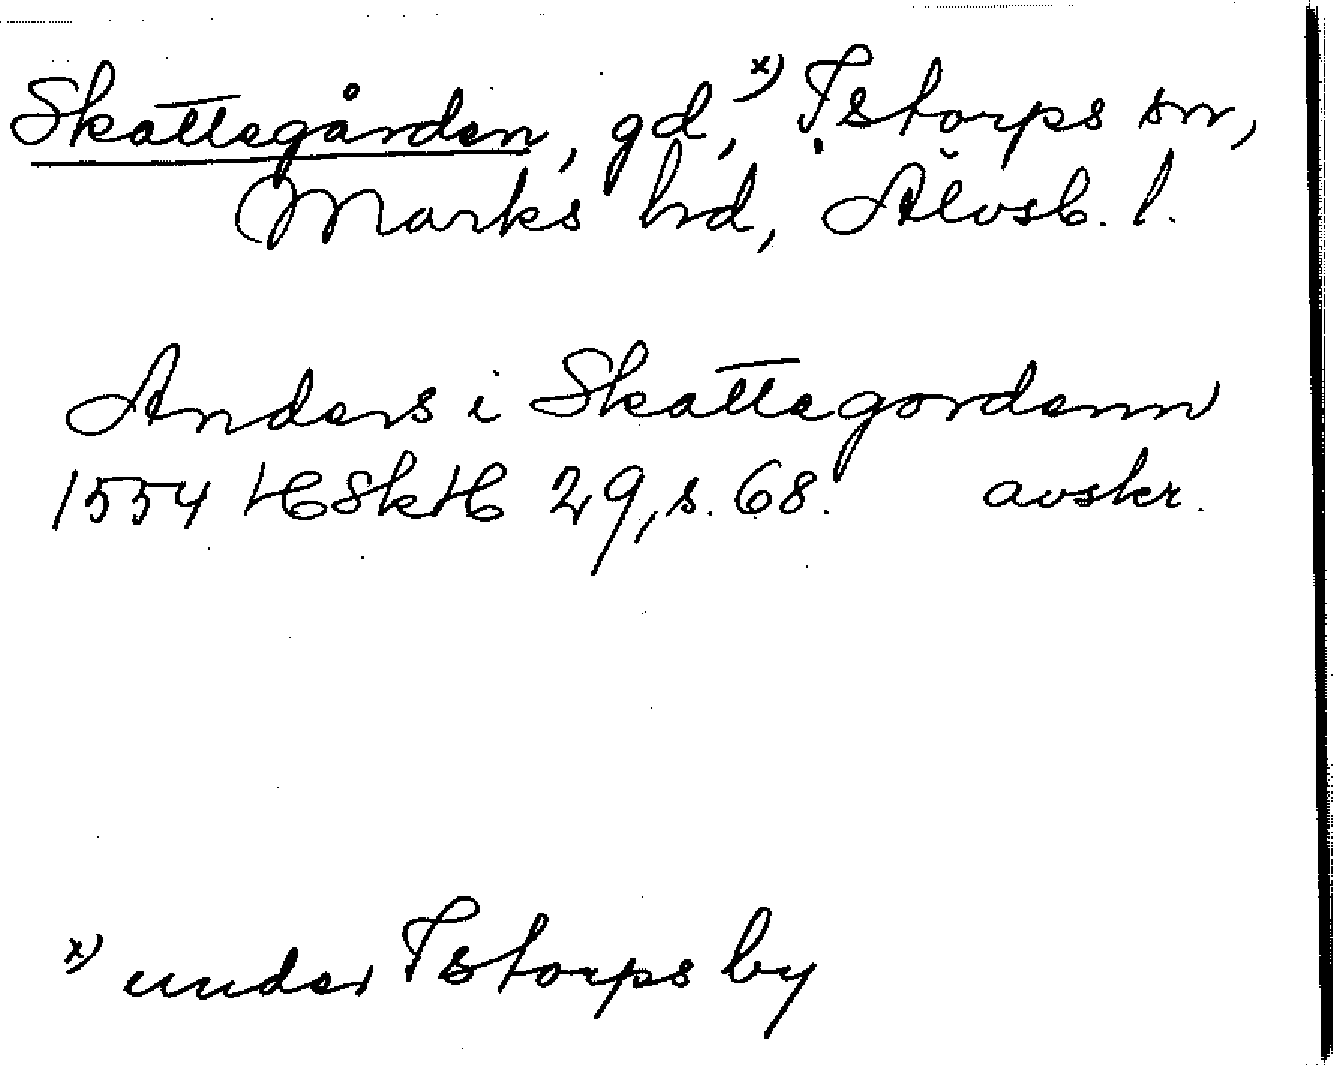 Skattegården, gd, x) Istorps sn,
Marks hd, Älvsb. l.
Anders i Skattegordenn
1554 HSkH 29, s. 68. avskr.
x) under Istorps by